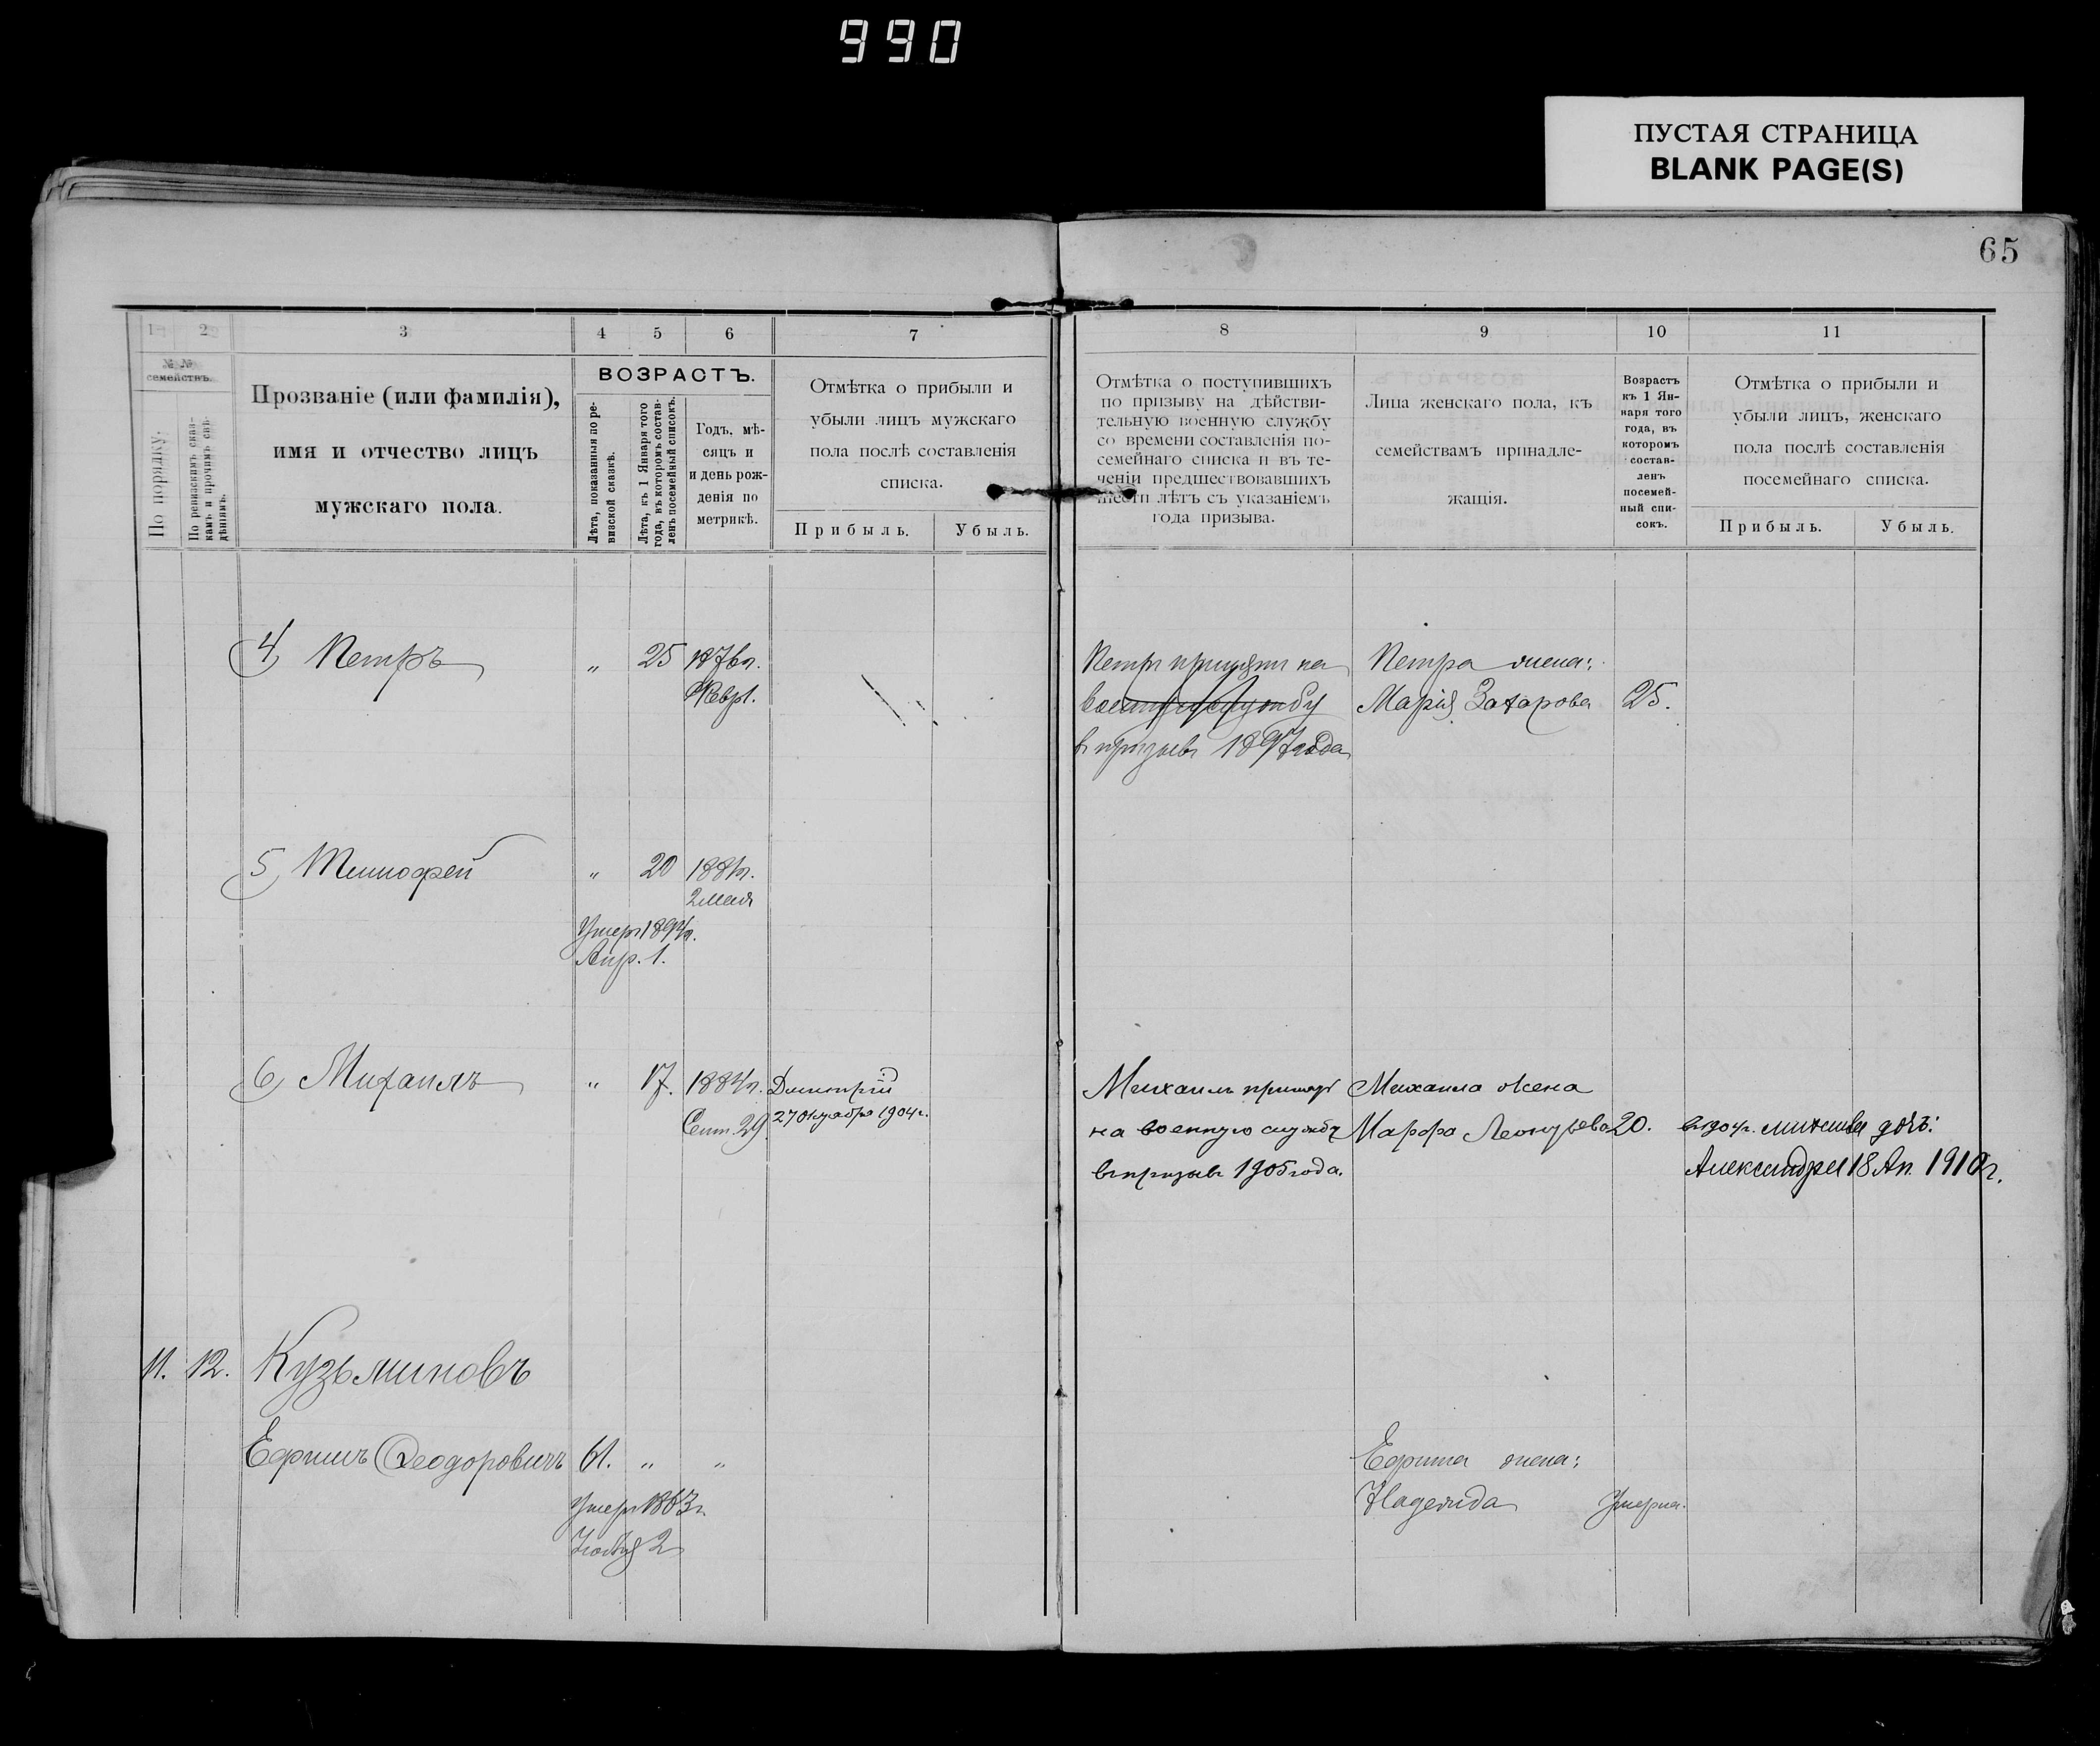 990
ПУСТАЯ СТРАНИЦА
BLANK PAGE(S)
65
1 2 3 4 5 6 7 8 9 10 11
№ №
семействъ.
По порядку.
По ревизскимъ сказ-
камъ и прочимъ свѣ-
дѣніямъ.
Прозваніе (или фамилія),
имя и отчество лицъ
мужскаго пола.
ВОЗРАСТЪ.
Лѣта, показанныя по ре-
визской сказкѣ.
Лѣта, къ 1 Января того
года, въ которомъ состав-
ленъ посемейный списокъ.
Годъ, мѣ-
сяцъ и
и день рож-
денія по
метрикѣ.
Отмѣтка о прибыли и
убыли лицъ мужскаго
пола послѣ составленія
списка.
Прибыль. Убыль.
Отмѣтка о поступившихъ
по призыву на дѣйстви-
тельную военную службу
со времени составленія по-
семейнаго списка и въ те-
ченіи предшествовавшихъ
шести лѣтъ съ указаніемъ
года призыва.
Лица женскаго пола, къ
семействамъ принадле-
жащія.
Возрастъ
къ 1 Ян-
варя того
года, въ
которомъ
состав-
ленъ
посемей-
ный спи-
сокъ.
Отмѣтка о прибыли и
убыли лицъ, женскаго
пола послѣ составленія
посемейнаго списка.
Прибыль. Убыль.
4) Петръ „ 25 1876г. Петръ принятъ на Петра жена:
Марія Захарова 25.
въ призывъ 1897 года
5) Тимофей „ 20 1881г.
2 мая
Умеръ 1894г.
Апр. 1.
6) Михаилъ „ 17. 1884г. Дмитрій Михаилъ принятъ Михаила жена
Сент. 29. 27 Октября 1904г. на военную службу Марфа Леонтьева 20. въ 1904г. дочь:
въ призывъ 1905 года. Александра 18 Ап. 1910г.
11. 12. Кузьминовъ
Ефимъ Ѳеодоровичъ 61. „ „ Ефима жена:
Умеръ 1883г. Надежда Умерла.
2